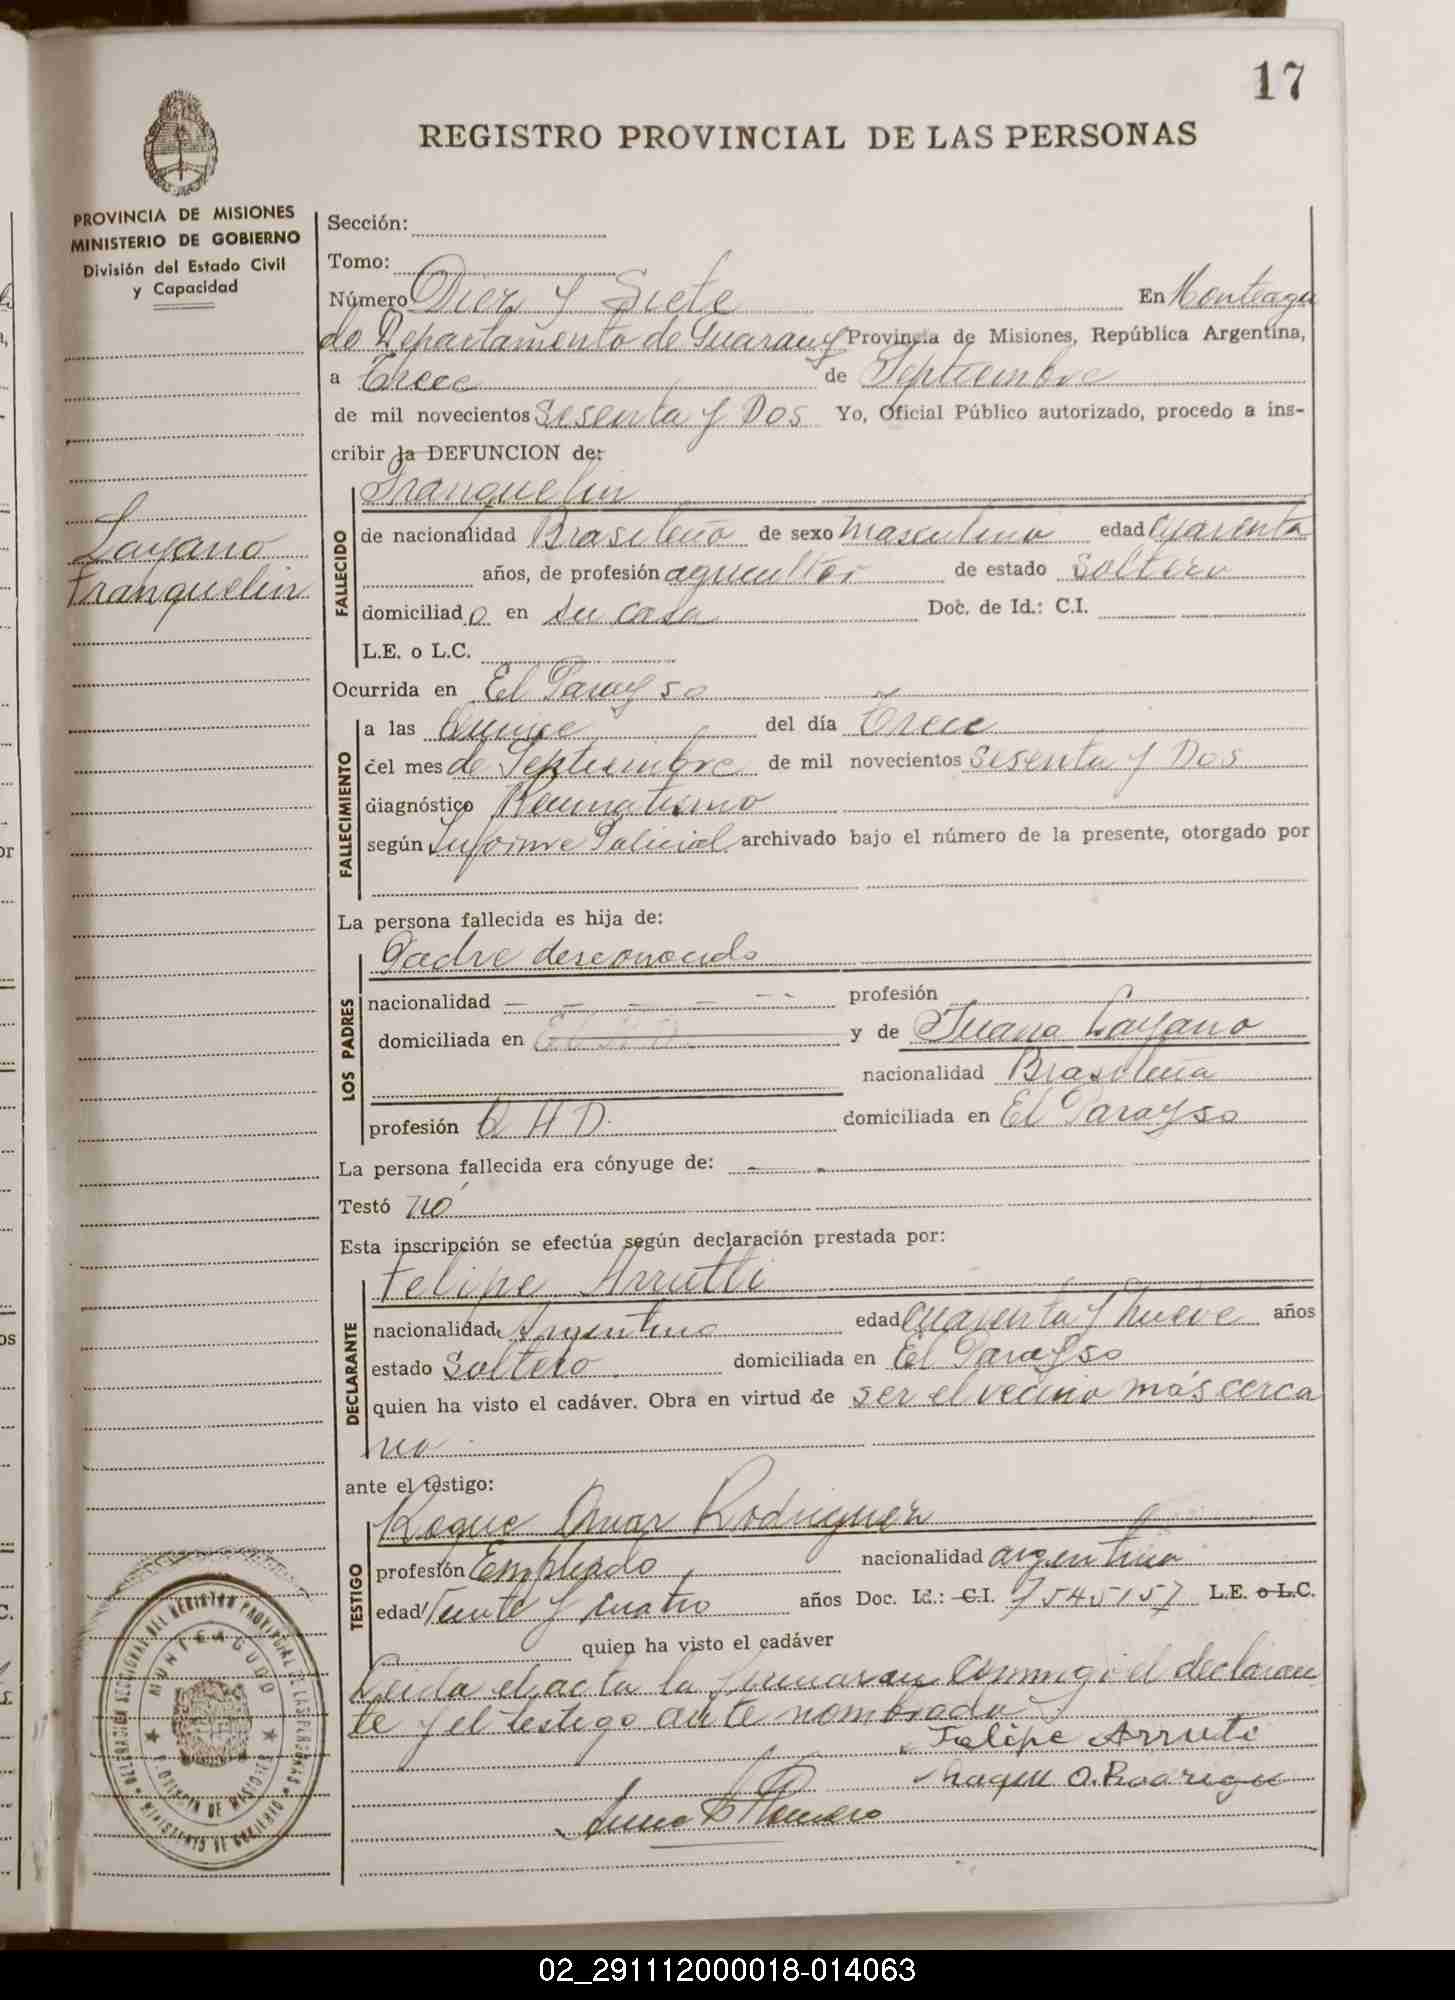 17
REGISTRO PROVINCIAL DE LAS PERSONAS
PROVINCIA DE MISIONES
MINISTERIO DE GOBIERNO
División del Estado Civil
y Capacidad
Layano
Franquelin
Sección:
Tomo:
Número Diez y Siete En Monteagu
do Departamento de Guarany Provincia de Misiones, República Argentina,
a Trece de Septiembre
de mil novecientos Sesenta y Dos Yo, Oficial Público autorizado, procedo a ins-
cribir la DEFUNCION de:
FALLECIDO
Franquelin
de nacionalidad Brasileño de sexo masculino edad cuarenta
años, de profesión agricultor de estado Soltero
domiciliado en su casa Doc. de Id.: C.I.
L.E. o L.C.
Ocurrida en El Parayso
FALLECIMIENTO
a las quince del día Trece
del mes de Septiembre de mil novecientos Sesenta y Dos
diagnóstico Reumatismo
según Informe Policial archivado bajo el número de la presente, otorgado por
La persona fallecida es hija de:
LOS PADRES
Padre desconocido
nacionalidad – – – – – - profesión
domiciliada en y de Juana Layano
nacionalidad Brasileña
profesión Q H D. domiciliada en El Parayso
La persona fallecida era cónyuge de: - -
Testó no
Esta inscripción se efectúa según declaración prestada por:
DECLARANTE
Felipe Arrutti
nacionalidad Argentino edad cuarenta y nueve años
estado Soltero. domiciliada en El Parayso
quien ha visto el cadáver. Obra en virtud de ser el vecino más cerca
no
ante el testigo:
TESTIGO
Roque Omar Rodriguez
profesión Empleado nacionalidad argentino
edad Veinte y cuatro años Doc. Id.: C.I. 7545157 L.E. o L.C.
quien ha visto el cadáver
Leida el acta la firmaran conmigo el declaran
te y el testigo ante nombrado
Felipe Arruti
Roque O. Rodrigue
Romero
DELEGACION SECCIONAL DEL REGISTRO PROVINCIAL DE LAS PERSONAS
MONTEAGUDO
MINISTERIO DE GOBIERNO
02_291112000018-014063